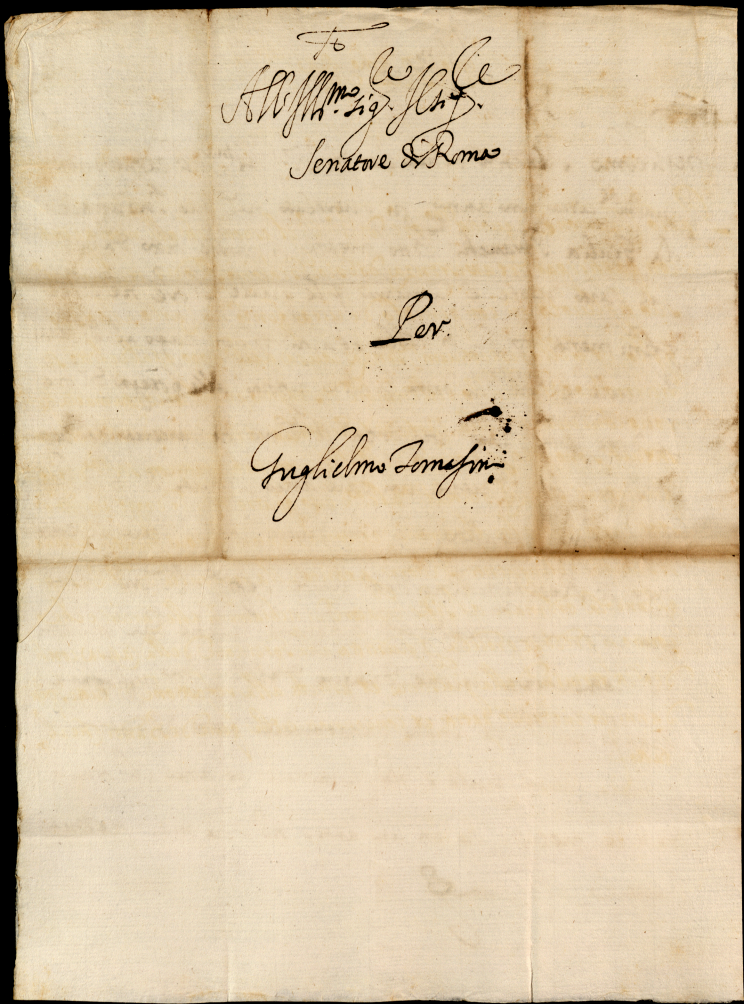 All Ill.mo Sig.re Il Sig.re
Senatore di Roma
Per
Guglielmo Tomasini